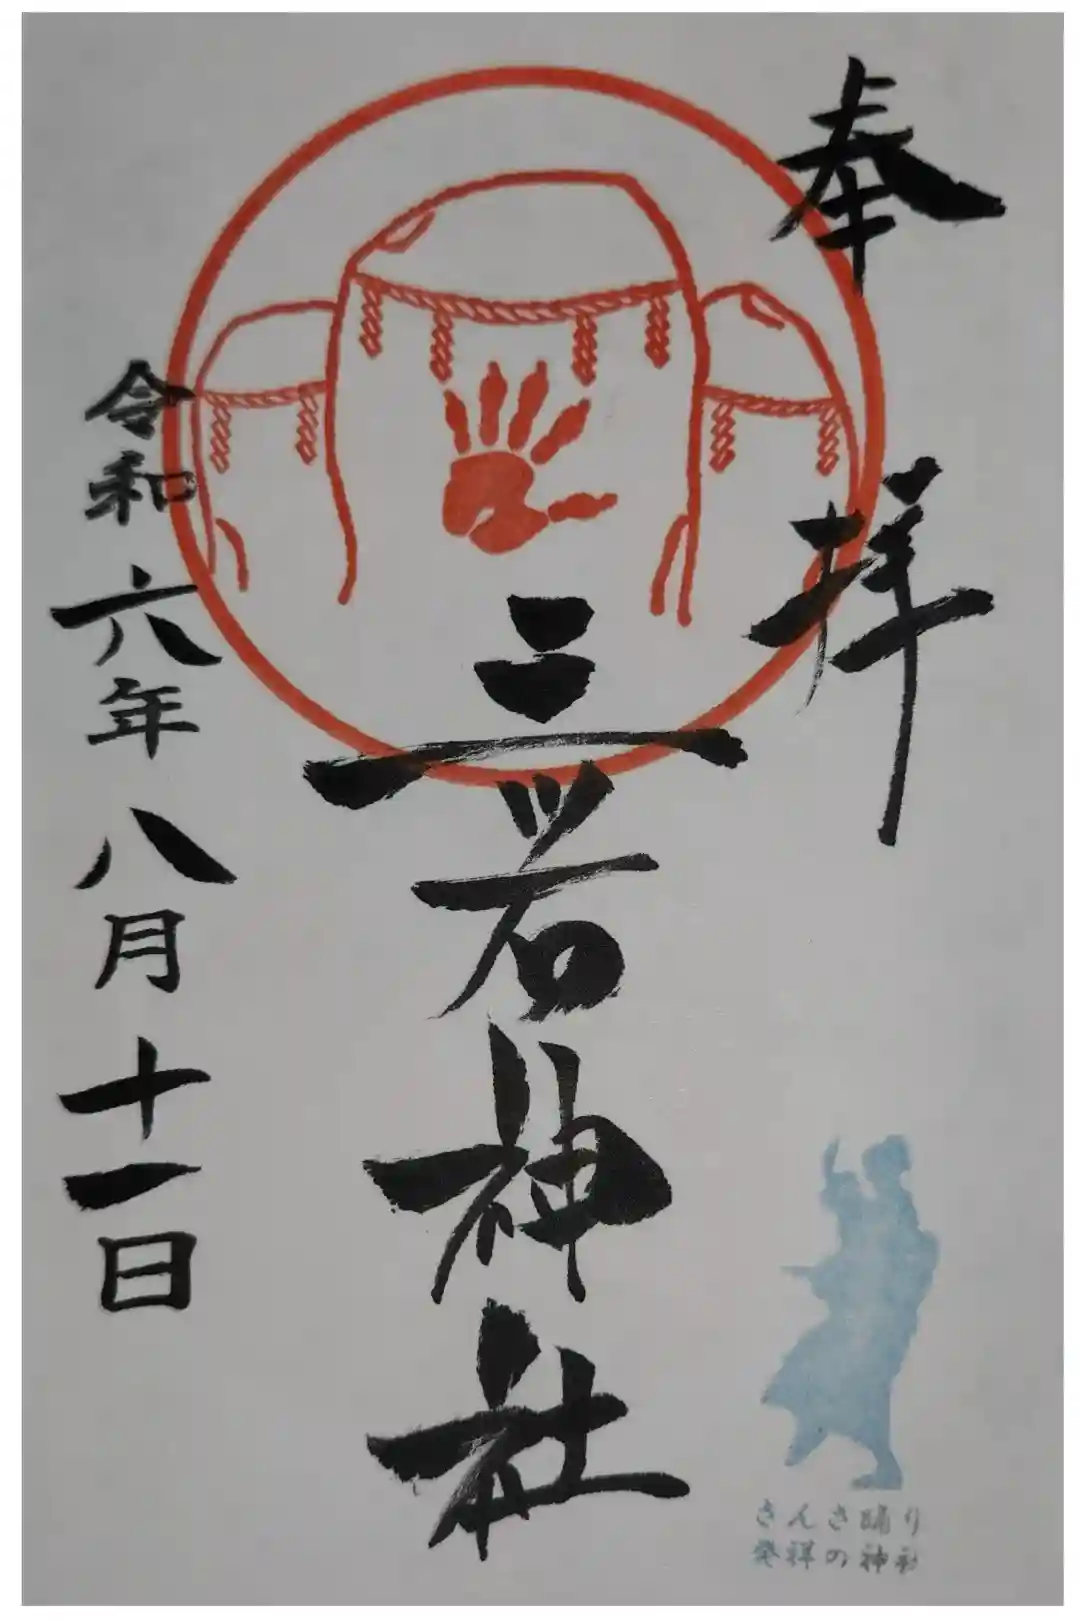 奉拝
三ツ石神社
令和六年八月十一日
さんさ踊り
発祥の神社